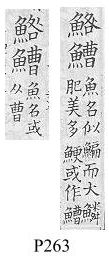 鯦
鰽
魚名似鯿而大鱗
肥美多鯁或作鰽
鯦
鰽
魚名或
从曹
P263